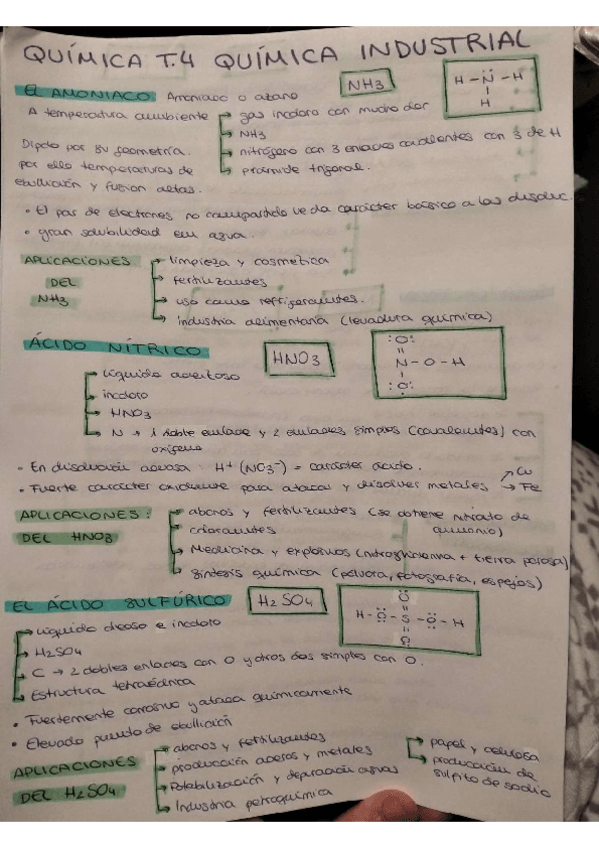 QUÍMICA T.4 QUÍMICA INDUSTRIAL
EL AMONIACO Amoniaco o azano
NH3
H - N - H
H
A temperatura ambiente → gas incoloro con mucho olor
→ NH3
→ nitrógeno con 3 enlaces covalentes con 3 de H
→ pirámide trigonal.
Dipolo por su geometría.
por ello temperaturas de
ebullición y fusión altas.
• El par de electrones no compartido le da carácter básico a las disoluc.
• gran solubilidad em agua.
APLICACIONES DEL NH3
→ limpieza y cosmetica
→ fertilizantes
→ uso como refrigerantes.
→ industria alimentaria (levadura química)
ÁCIDO NÍTRICO
HNO3
:O:
N - O - H
:O:
→ líquido aceitoso
→ incoloro
→ HNO3
→ N → 1 doble enlace y 2 enlaces simples (covalentes) con
oxígeno
• En disolución acuosa : H+ (NO3-) = carácter ácido.
• Fuerte carácter oxidante para atacar y disolver metales → Cu
→ Fe
APLICACIONES :
DEL HNO3
→ abonos y fertilizantes (se obtiene nitrato de
amonio)
→ colorantes
→ Medicina y explosivos (nitroglicerina + tierra porosa)
→ síntesis química (pólvora, fotografía, espejos)
EL ÁCIDO SULFÚRICO
H2SO4
O
H - O - S - O - H
O
→ líquido oleoso e incoloro
→ H2SO4
→ C → 2 dobles enlaces con O y otros dos simples con O.
→ Estructura tetraédrica
• Fuertemente corrosivo y ataca químicamente
• Elevado punto de ebullición
APLICACIONES
DEL H2SO4
→ abonos y fertilizantes
→ producción aceros y metales
→ Potabilización y depuración aguas
→ Industria petroquímica
→ papel y celulosa
→ producción de
sulfito de sodio